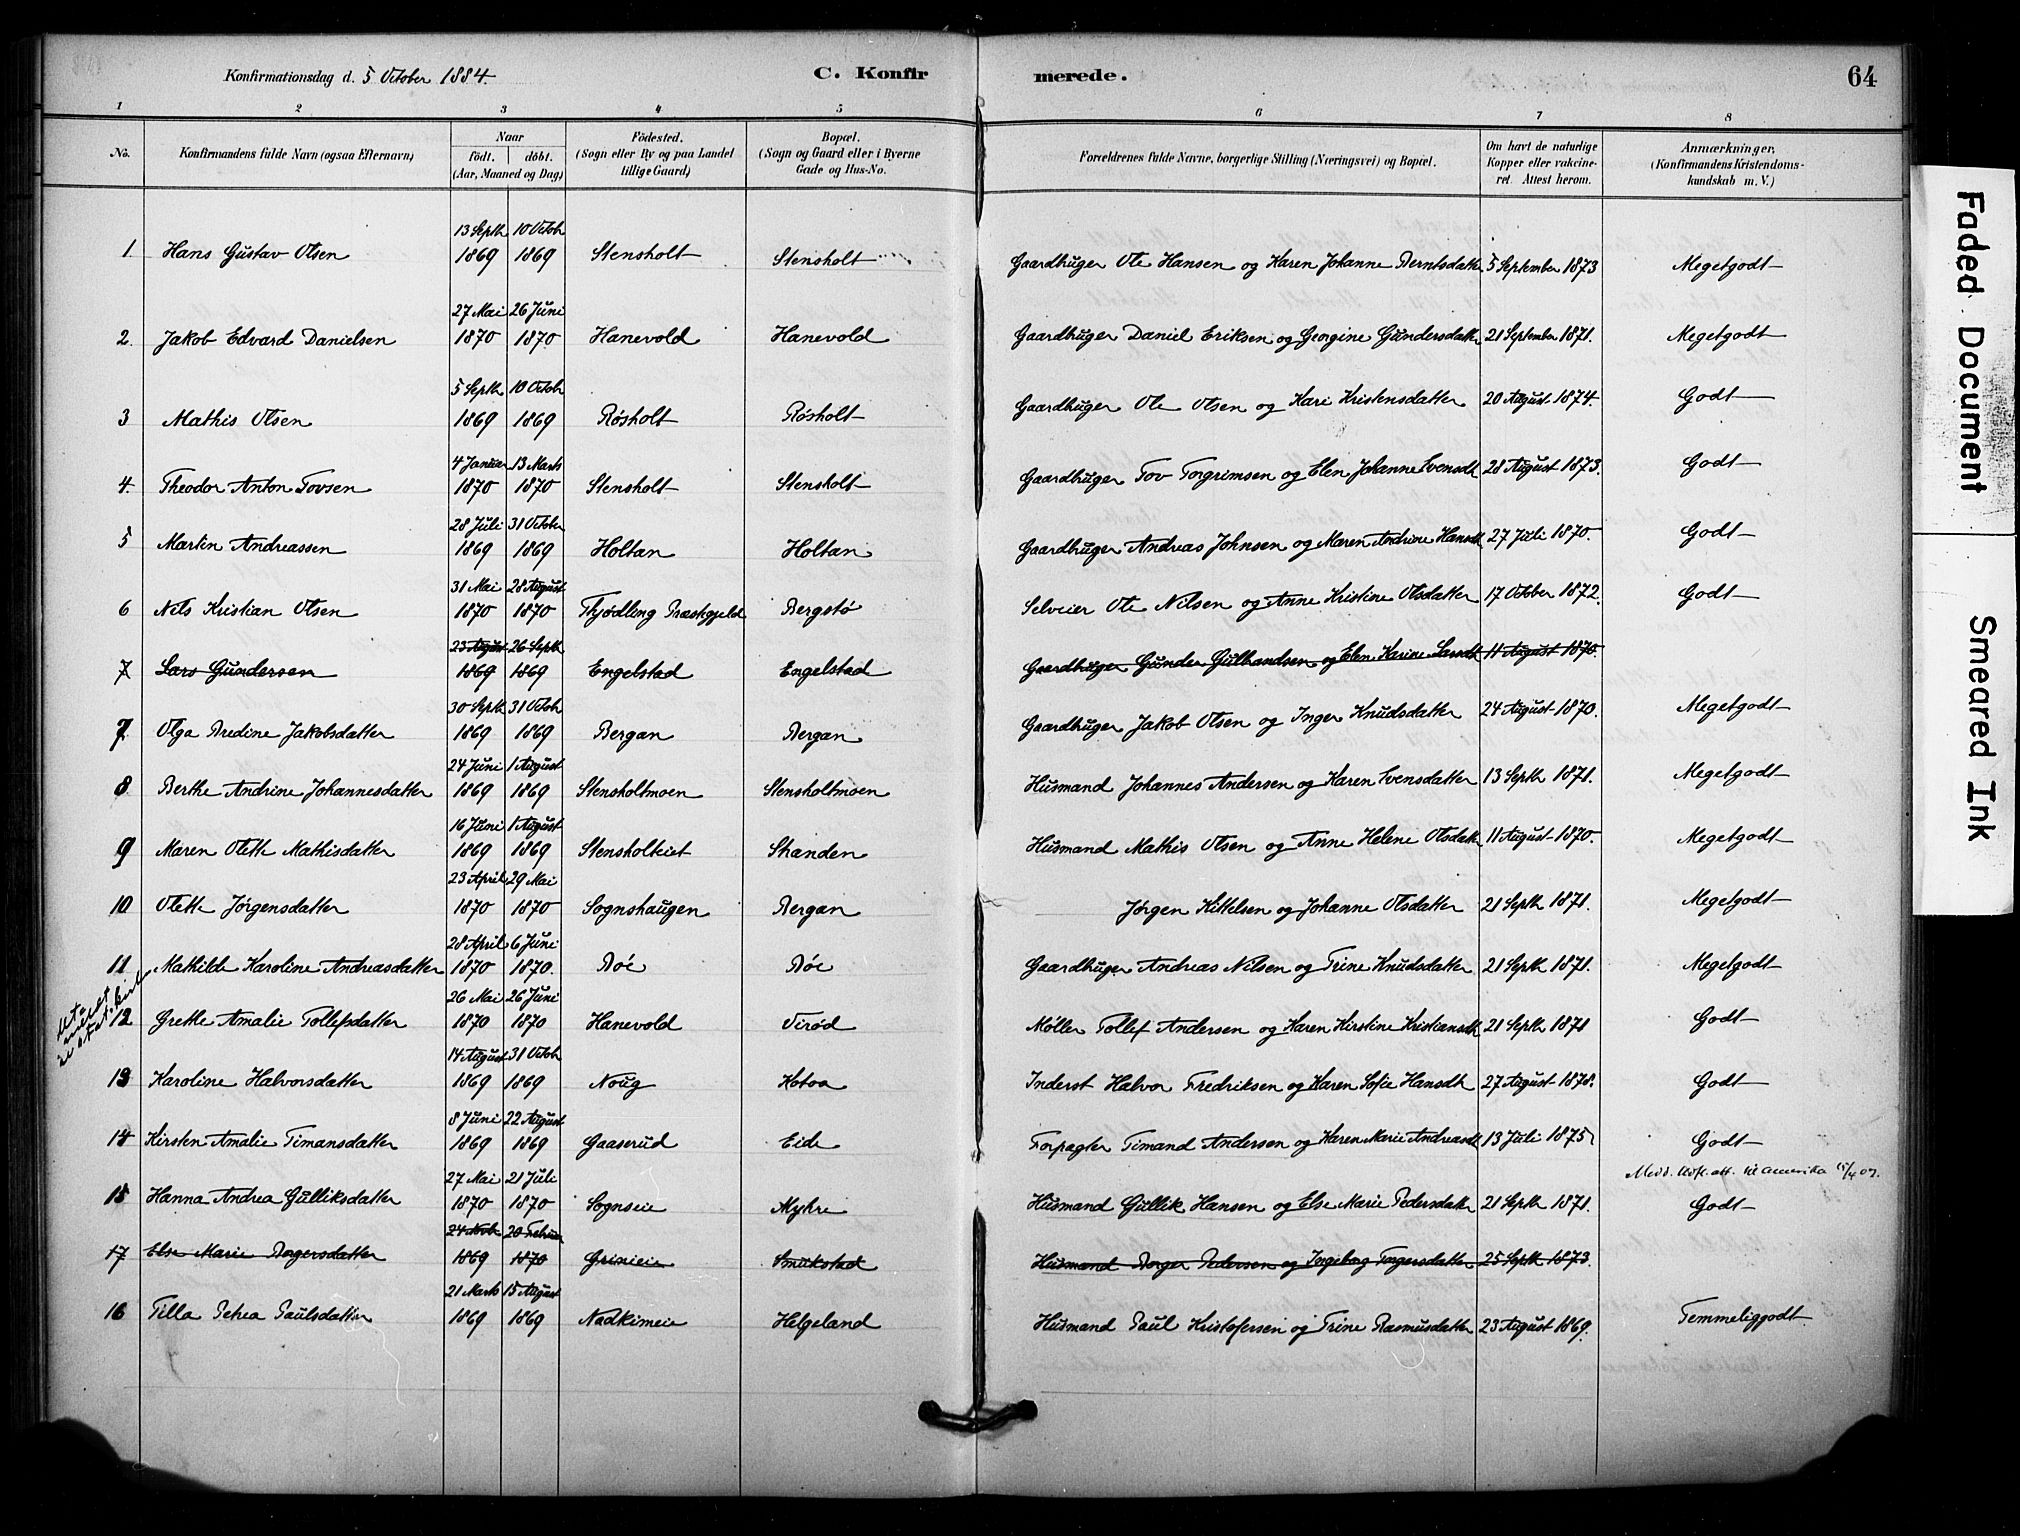 Konfirmationsdag d. 5 October 1884. C. Konfirmerede. 64
1 2 3 4 5 6 7 8
No. Konfirmandens fulde Navn (ogsaa Efternavn) Naar födt. döbt. (Aar, Maaned og Dag) Födested. (Sogn eller By og paa Landet tillige Gaard) Bopæl. (Sogn og Gaard eller i Byerne Gade og Hus-No. Forældrenes fulde Navne, borgerlige Stilling (Næringsvei) og Bopæl. Om havt de naturlige Kopper eller vakcineret. Attest herom. Anmærkninger, (Konfirmandens Kristendomskundskab m. V.)
1 Hans Gustav Olsen 13 Septb 1869 10 Octob 1869 Stensholt Stensholt Gaardbruger Ole Hansen og Karen Johanne Berntsdatter 5 September 1873 Megetgodt
2. Jakob Edvard Danielsen 27 Mai 1870 26 Juni 1870 Hanevold Hanevold Gaardbruger Daniel Eriksen og Georgine Gundersdatter 21 September 1871. Megetgodt
3 Mathis Olsen 5 Septb 1869 10 Octob 1869 Røsholt Røsholt Gaardbruger Ole Olsen og Kari Kristensdatter 20 August 1874. Godt
4. Theodor Anton Tovsen 4 Januar 1870 13 Marts 1870 Stensholt Stensholt Gaardbruger Tov Torgrimsen og Elen Johanne Svensdt 28 August 1873. Godt
5 Martin Andreassen 28 Juli 1869 31 October 1869 Holtan Holtan Gaardbruger Andreas Johnsen og Maren Andrine Hansdt 27 Juli 1870. Godt
6 Nils Kristian Olsen 31 Mai 1870 28 August 1870 Thjødling Præstegjeld Bergstø Selveier Ole Nilsen og Anne Kristine Olsdatter 17 October 1872. Godt
7 Lars Gundersen 23 August 1869 26 Septb 1869 Engelstad Engelstad Gaardbruger Gunder Gulbrandsen og Elen Karine Larsdt 11 August 1870.
7. Olga Bredine Jakobsdatter 30 Septb 1869 31 Octob 1869 Bergan Bergan Gaardbruger Jakob Olsen og Inger Knudsdatter 24 August 1870. Megetgodt
8. Berthe Andrine Johannesdatter 24 Juni 1869 1 August 1869 Stensholtmoen Stensholtmoen Husmand Johannes Andersen og Karen Svensdatter 13 Septb 1871. Megetgodt
9 Maren Olette Mathisdatter 16 Juni 1869 1 August 1869 Stensholteiet Stranden Husmand Mathis Olsen og Anne Helene Olsdatt 11 August 1870. Megetgodt
10 Olette Jörgensdatter 23 April 1870 29 Mai 1870 Sognshaugen Bergan Jörgen Kittelsen og Johanne Olsdatter 21 Septb 1871. Megetgodt
11 Mathilde Karoline Andreasdatter 28 April 1870 6 Juni 1870. Bøe Bøe Gaardbruger Andreas Nilsen og Trine Knudsdatter 21 Septb 1871. Megetgodt
12 Grethe Amalie Tollefsdatter 26 Mai 1870 26 Juni 1870 Hanevold Virød Møller Tollef Andersen og Karen Kirstine Kristiansdt 21 Septb 1871 Godt
13 Karoline Halvorsdatter 14 August 1869 31 Octob 1869 Noug Inderst Halvor Fredriksen og Karen Sofie Hansdt 27 August 1878. Godt
14 Kirsten Amalie Timansdatter 8 Juni 1869 22 August 1869 Gaaserud Eide Forpagter Timand Andersen og Karen Marie Andreasdt 13 Juli 1875 Godt
Medd. att. til Amerika 15/4 07.
15 Hanna Andrea Gulliksdatter 27 Mai 1870 21 Juli 1870 Sognseie Myhre Husmand Gullik Hansen og Else Marie Pedersdatter 21 Septb 1871. Godt
17 Else Marie Borgersdatter 24 Novb 1869 20 Februar 1870 Grimeie Smukstad Husmand Borger Pedersen og Ingeborg Torgersdatter 25 Septb 1873.
16 Tilla Petrea Paulsdatter 21 Marts 1869 15 August 1869 Nadkimeie Helgeland Husmand Paul Kristofersen og Trine Rasmusdatter 23 August 1869. Temmeliggodt
Faded Document
Smeared Ink